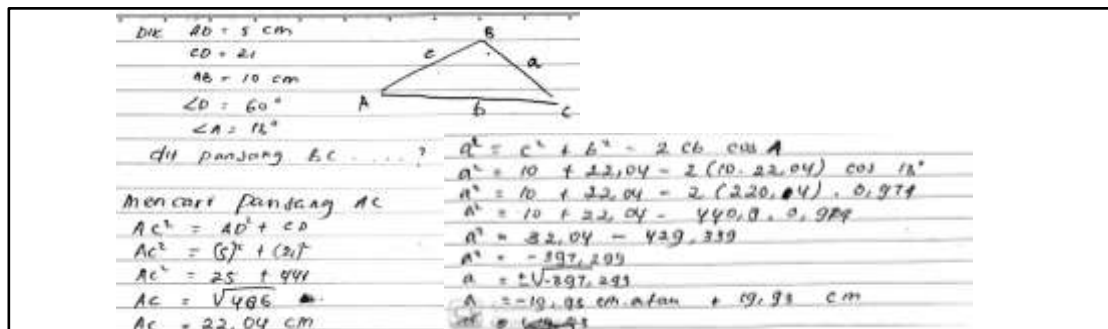 Dik AD = 5 cm
CD = 21
AB = 10 cm
∠D = 60°
∠A =
dit panjang BC ....?
B
c
a
A
b
C
Mencari panjang AC
AC² = AD² + CD
AC² = (5)² + (21)²
AC² = 25 + 441
AC =
AC = 22,04 cm
a² = c² + b² - 2 cb cos A
a² = 10 + 22,04 - 2 (10. 22,04) cos
a² = 10 + 22,04 - 2 (220,4) .
a² = 10 + 22,04 - 440,8.
a² = 32,04 - 429,339
a² = -397,299
a = ±√-397,299
a = -19,93 cm atau + 19,93 cm